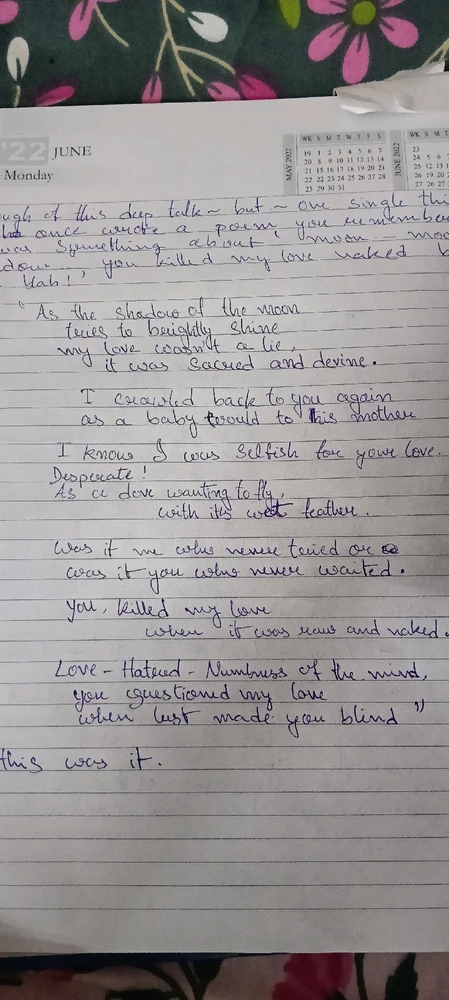 '22 JUNE
Monday
MAY 2022
WK S M T W T F S
19 1 2 3 4 5 6 7
20 8 9 10 11 12 13 14
21 15 16 17 18 19 20 21
22 22 23 24 25 26 27 28
23 29 30 31
JUNE 2022
WK S M T
23
24 5 6
25 12 13
26 19 20
27 26 27
of this deep talk ~ but ~ one single thi
once wrote a poem you remember
was Something about moon - moo
dow you killed my love naked b
Yah!
"As the shadow of the moon
tries to brightly shine
my love wasn't a lie,
it was sacred and devine.
I crawled back to you again
as a baby would to his mother
I know I was selfish for your love.
Desperate!
As a dove wanting to fly,
with its wet feather.
Was it me who never tried or
was it you who never wanted.
You, killed my love
when it was raw and naked.
Love - Hatred - Numbness of the mind,
you questioned my love
when lust made you blind"
this was it.